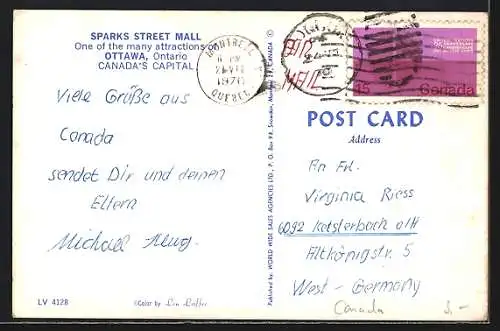 SPARKS STREET MALL
One of the many attractions of
OTTAWA, Ontario
CANADA'S CAPITAL
Viele Grüße aus
Canada
sendet Dir und deinen
Eltern
Michael
LV 4128
Color by
Published by WORLD WIDE SALES AGENCIES LTD., P. O. Box 98, Snowdon, Montreal
MONTREAL
1970
QUEBEC
AIR
MAIL
15
Canada
POST CARD
Address
An Frl.
Virginia Riess
6092 Kelsterbach a/M
Altkönigstr. 5
West-Germany
Canada